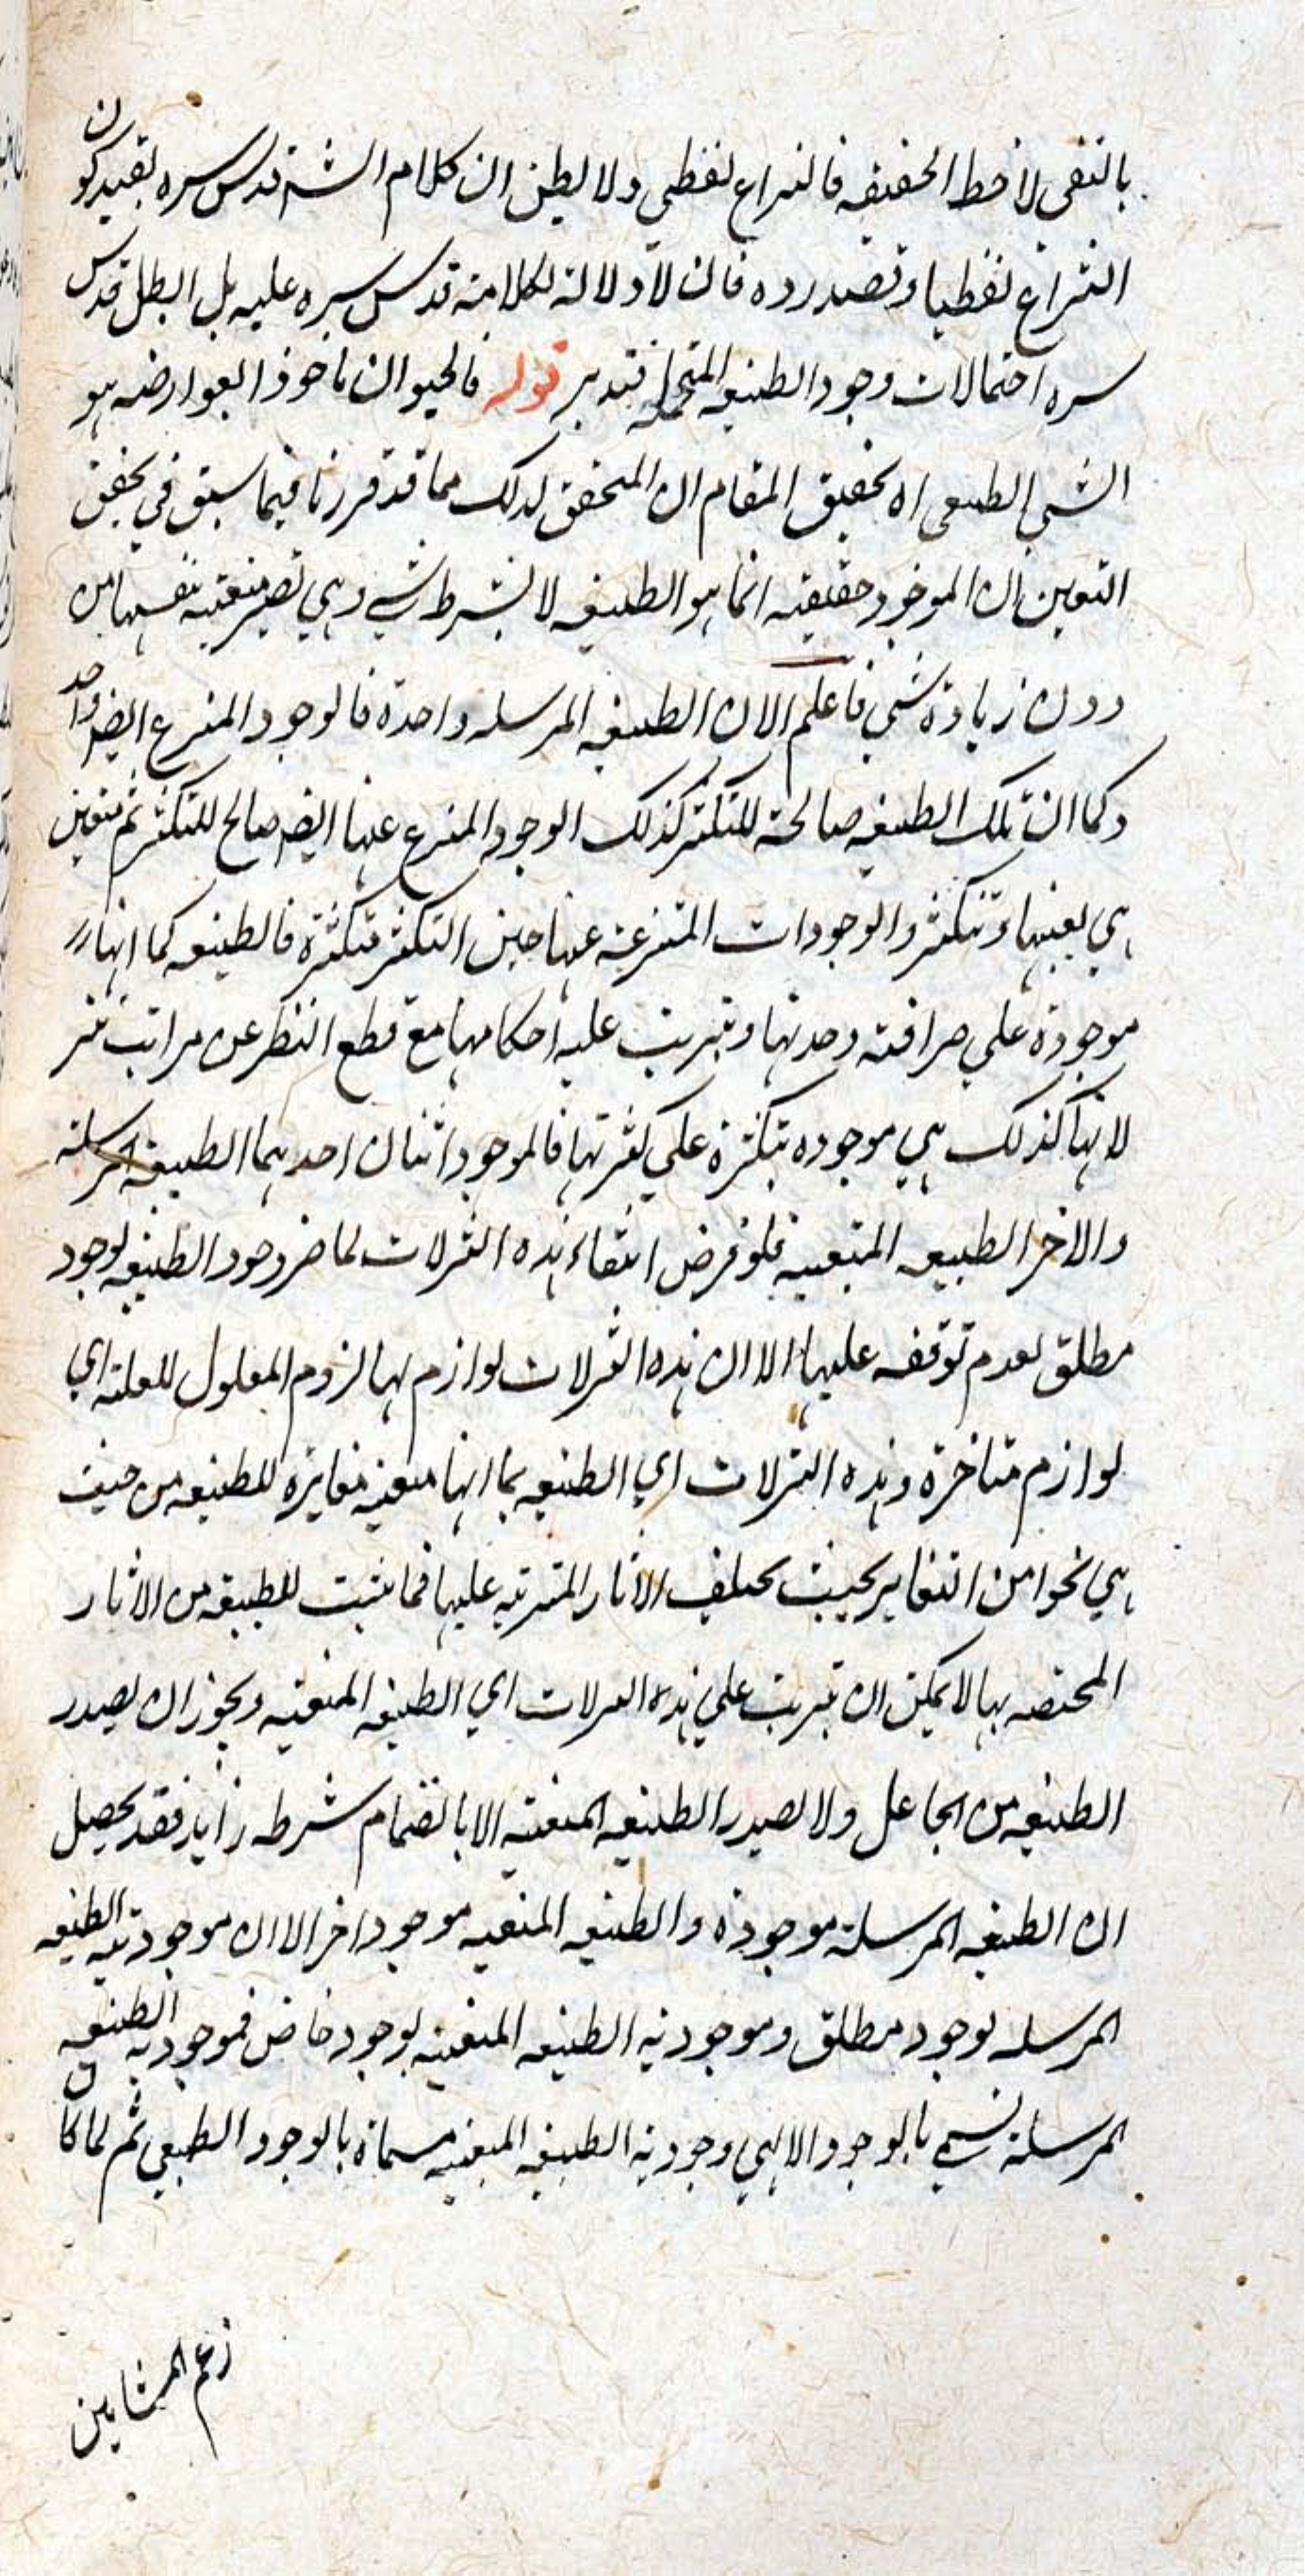 بالنفى لاحظ الحقيقه فالنزاع لفظي ولا يظن ان كلام الشه قدس سره يفيد كون
النزاع لفظيا وتصدر رده فانه لا دلالة لكلامه قدس سره عليه بل ابطل قدس
سره احتمالات وجود الطبيعه المتحملة فتدبر قوله فالحيوان ماخوذا بعوارضه هو
الشي الطبعي اه تحقيق المقام ان المتحقق لديك مما قد قررنا فيما سبق في تحقيق
التعين ان الموجود حقيقة انما هو الطبيعه لا بشرط شي وهي تصير متعينه بنفسها من
دون زيادة شي فاعلم الان الطبيعه المرسله واحدة فالوجود المنتزع ايضا واحد
وكما ان تلك الطبيعه صالحة للتكثر كذلك الوجود المنتزع عنها ايضا صالح للتكثر ثم تتعين
هي بعينها وتتكثر والوجودات المنتزعة عنها حين التكثر متكثرة فالطبيعه كما انها
موجودة علي صرافة وحدتها ويترتب عليه احكامها مع قطع النظر عن مراتب تنز
لاتها كذلك هي موجوده متكثرة علي كثرتها فالموجود اثنان احدهما الطبيعه المرسلة
والاخر الطبيعه المتعينه فلو فرض انتفاء هذه التنزلات لما ضر وجود الطبيعه لوجود
مطلق لعدم توقفه عليها الا ان هذه التنزلات لوازم لها لزوم المعلول للعلة اي
لوازم متاخرة وهذه التنزلات اي الطبيعه بما انها متعينة مغايرة للطبيعه من حيث
هي نحوا من التغاير بحيث يختلف الاثار المترتبه عليها فما يثبت للطبيعه من الاثار
المختصه بها لا يمكن ان يترتب علي هذه التنزلات اي الطبيعه المتعينه ويجوز ان يصدر
الطبيعه من الجاعل ولا يصدر الطبيعه المتعينة الا بانضمام شرط زايد فقد يحصل
ان الطبيعه المرسلة موجودة والطبيعه المتعينه موجود اخر الا ان موجودية الطبيعه
المرسله بوجود مطلق وموجودية الطبيعه المتعينه بوجود خاص فموجودية الطبيعه
المرسلة تسمي بالوجود الالهي وجودية الطبيعه المتعينه مسماة بالوجود الطبيعي ثم لما كان
زعم المشايين